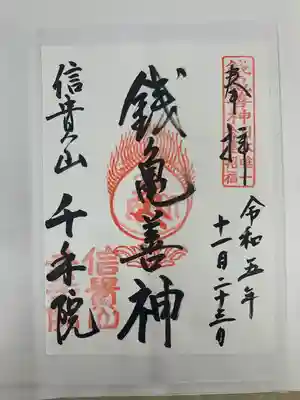 奉拝
令和五年
十一月二十三日
銭亀善神
信貴山 千手院